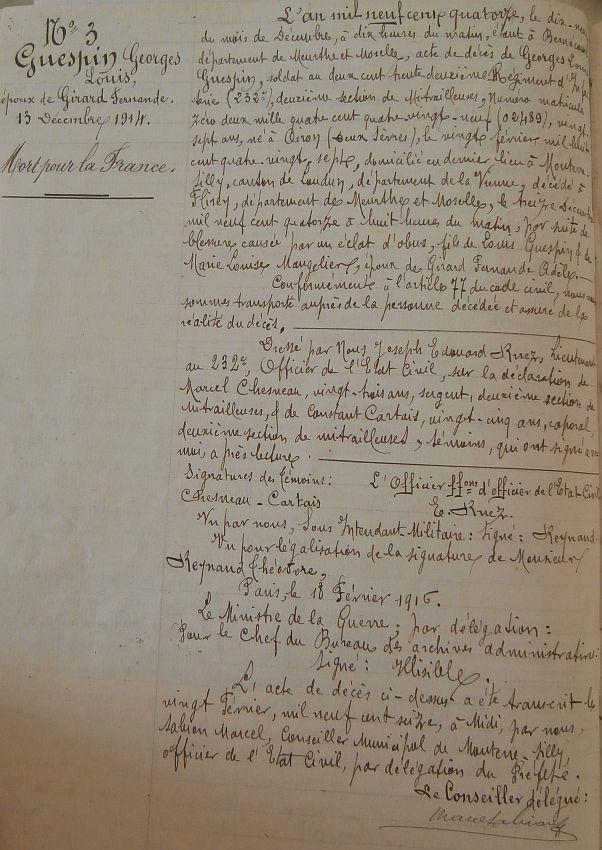 N° 3
Guespin Georges
Louis,
époux de Girard Fernande.
13 Décembre 1914.
Mort pour la France.
L'an mil neuf cent quatorze, le dix-neuf
du mois de Décembre, à dix heures du matin, étant à Bernécourt
département de Meurthe et Moselle, acte de décès de Georges Louis
Guespin, soldat au deux cent trente deuxième Régiment d'Infan
terie (232e), deuxième section de Mitrailleuses, Numéro matricule
zéro deux mille quatre cent quatre vingt-neuf (02489), vingt-
sept ans, né à Oiron (Deux Sèvres), le vingt février mil huit
cent quatre-vingt sept, domicilié en dernier lieu à Monterre-
Silly, canton de Loudun, département de la Vienne, décédé à
Flirey, département des Meurthe et Moselle, le treize Décembre
mil neuf cent quatorze à huit heures du matin, par suite de
blessure causée par un éclat d'obus, fils de Louis Guespin & de
Marie Louise Maugelier, époux de Girard Fernande Adèle.
Conformément à l'article 77 du code civil, nous nous
sommes transporté auprès de la personne décédée et assuré de la
réalité du décès.
Dressé par Nous Joseph Edouard Knez, Lieutenant
au 232e, Officier de l'Etat Civil, sur la déclaration de
Marcel Chesneau, vingt-trois ans, sergent, deuxième section de
mitrailleuses, & de Constant Cartais, vingt-cinq ans, caporal,
deuxième section de mitrailleuses, témoins, qui ont signé avec
moi, après lecture.
Signatures des témoins: L'Officier ffons d'officier de l'Etat-Civil
Chesneau - Cartais
E. Knez.
Vu par nous, Sous Intendant-Militaire: Signé: Reynaud.
Vu pour légalisation de la signature de Monsieur
Reynaud Théodore,
Paris, le 18 Février 1916.
Le Ministre de la Guerre; par délégation:
Pour le Chef du Bureau des archives administratives
Signé: Illisible.
L'acte de décès ci-dessus a été transcrit le
vingt Février, mil neuf cent seize, à Midi, par nous,
Marcel, Conseiller Municipal de Monterre-Silly,
officier de l'Etat Civil, par délégation du Préfet.
Le Conseiller délégué: